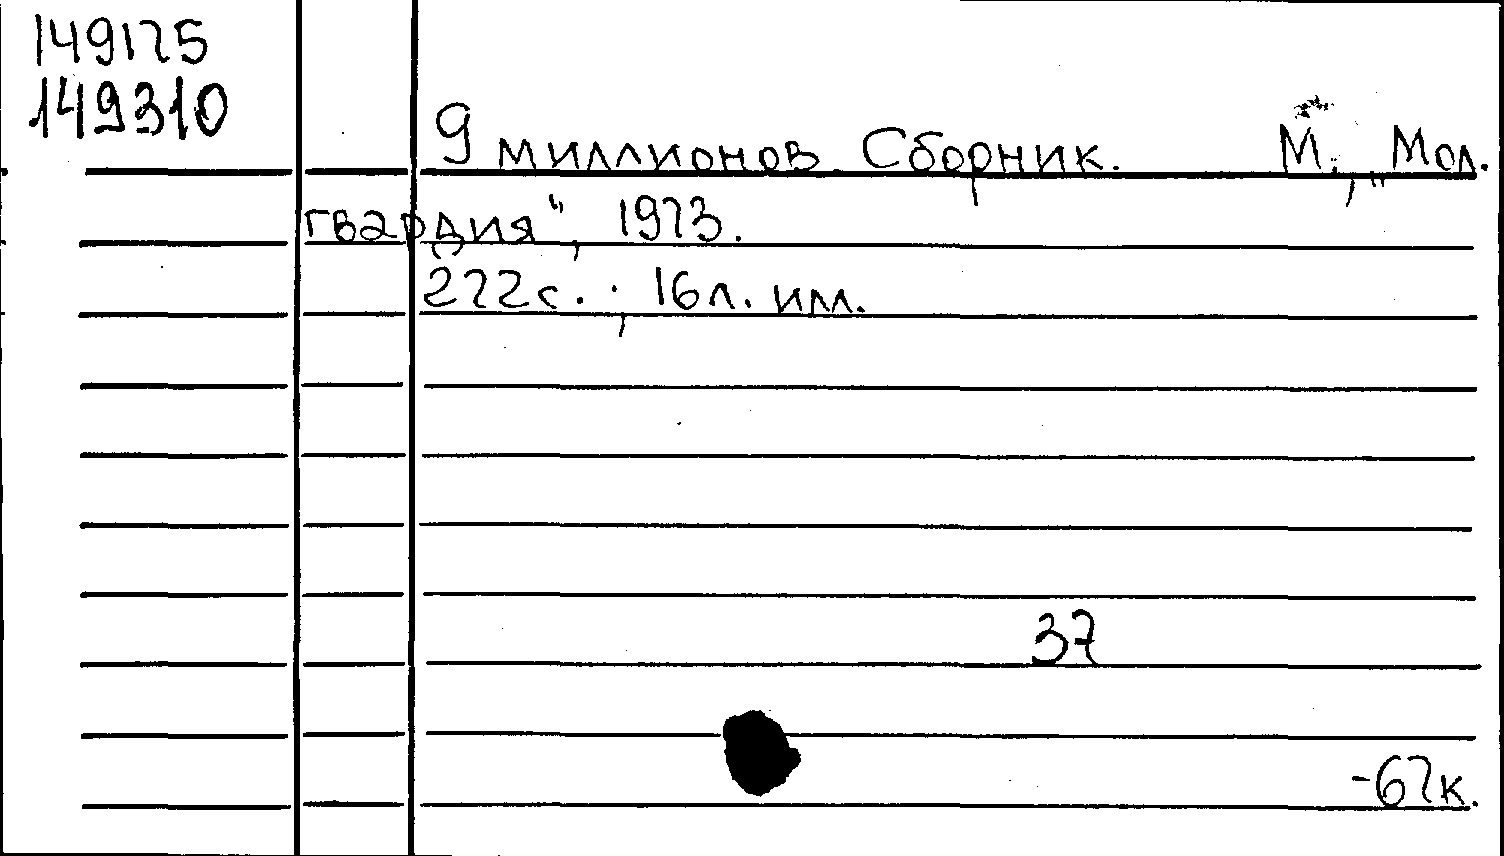 149125
149310
9 миллионов. Сборник. М., „Мол.
гвардия", 1973.
222с.; 16л. илл.
37
-67к.